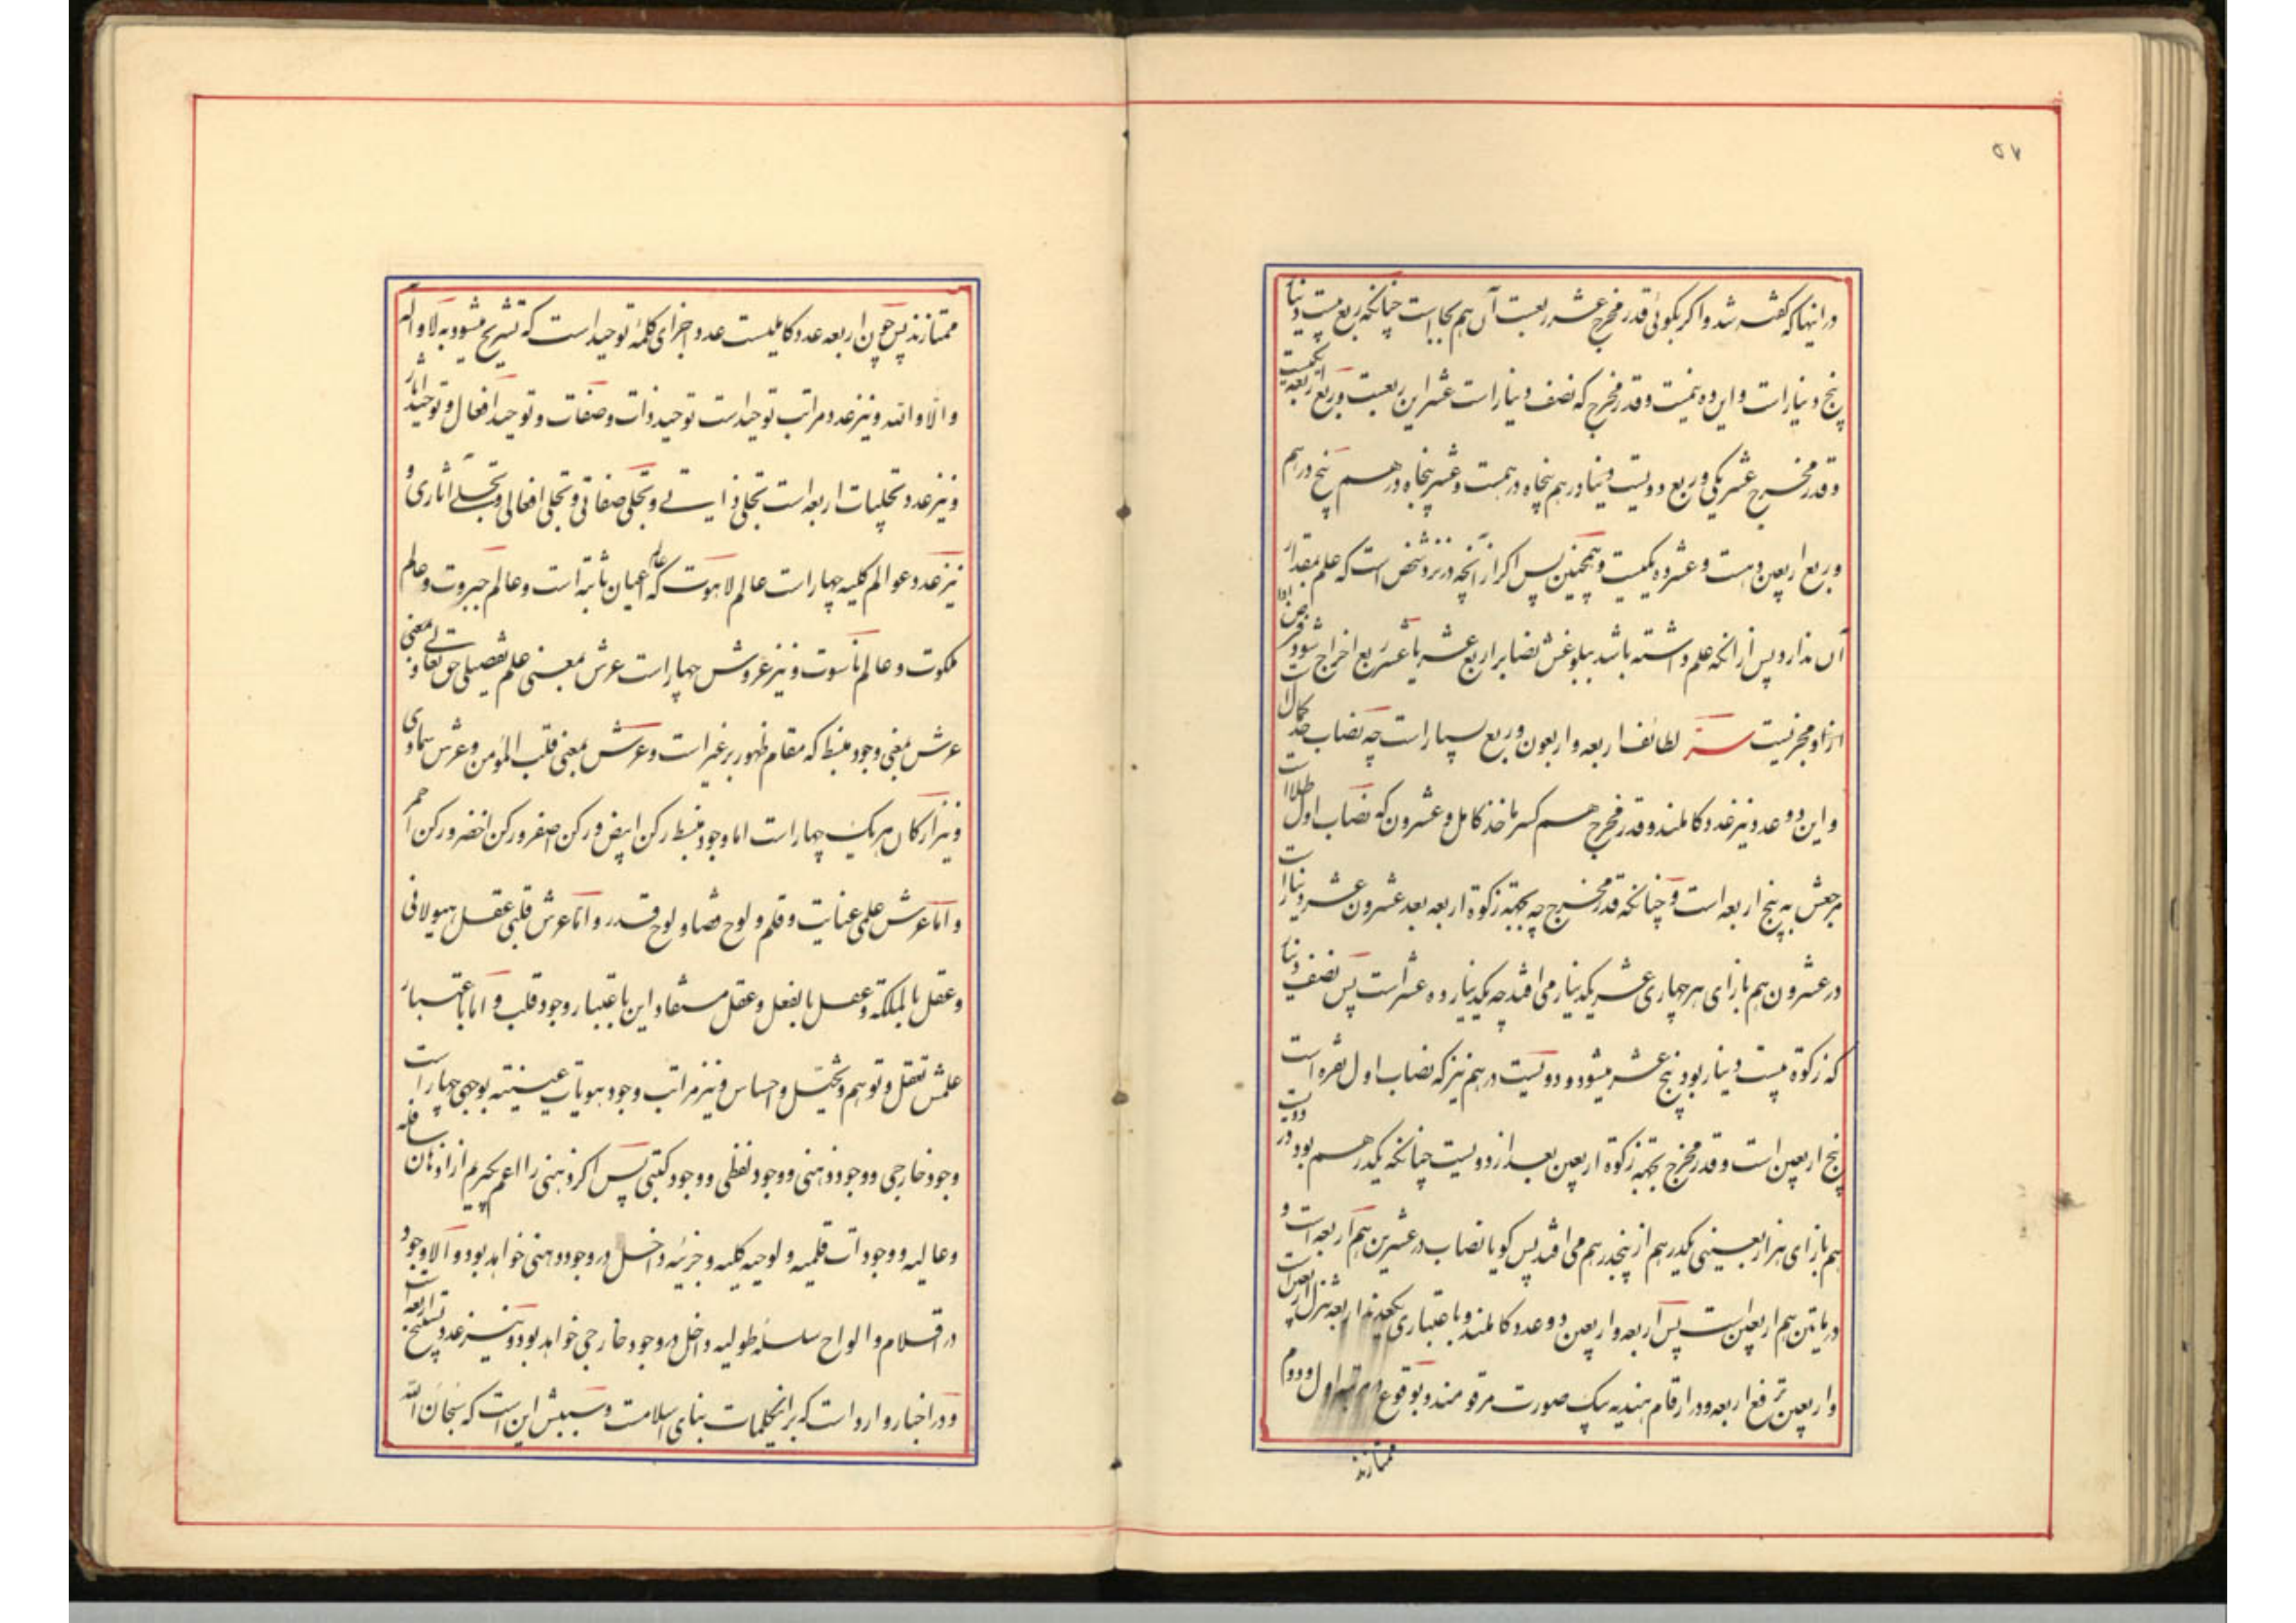 ۵۷
در اینها که گفته شد و اگر بگوئی قدر مخرج عشر ربعست آن هم بجا است چنانکه ربع بیست دینار
پنج دینار است و این ده نیمست و قدر مخرج که نصف دینار است عشر این ربعست و ربع اربعه یکیست
و قدر مخرج عشر یکی و ربع دویست درهم پنجاه درهمست و عشر پنجاه درهم پنج درهم
و ربع اربعین ده است و عشر ده یکیست و همچنین پس اگر از آنچه در نزد شخص است که علم بمقدار
آن ندارد پس از آنکه علم داشته باشد ببلوغش نصاب را ربع عشر یا عشر ربع اخراج شود فرض ادا
از او مجزیست سر لطائف اربعه و اربعون و ربع بسیار است چه نصاب حد کمال است
و این دو عدد نیز عدد کاملند و قدر مخرج هم کسر ماخذ کامل و عشرون که نصاب اول طلا است
مرجعش به پنج اربعه است و چنانکه قدر مخرج چه بجهة زکوة اربعه بعد عشرون عشر دینار است
در عشرون هم بازای هر چهاری عشر یکدینار می افتد چه یکدینار ده عشر است پس نصف دینار
که زکوة بیست دینار بود پنج عشر میشود و دویست درهم نیز که نصاب اول نقره است
پنج اربعین است و قدر مخرج بجهة زکوة اربعین بعد از دویست چنانکه یکدرهم بود در دویست
هم بازای هر اربعینی یکدرهم از پنجدرهم می افتد پس گویا نصاب در عشرین هم اربعه است و
در مأتین هم اربعین است پس اربعه و اربعین دو عدد کاملند و باعتباری یکعددند اربعه تنزل اربعین است
و اربعین ترفع اربعه و در ارقام هندیه بیک صورت مرقومند و بوقوع در مرتبه اول و دوم
ممتازند
ممتازند پس چون اربعه عدد کاملیست عدد اجزای کلمه توحید است که تشریح میشود به لا و اله
و الا و الله و نیز عدد مراتب توحید است توحید ذات و صفات و توحید افعال و توحید آثار
و نیز عدد تجلیات اربعه است تجلی ذاتی و تجلی صفاتی و تجلی افعالی و تجلی آثاری و
نیز عدد عوالم کلیه چهار است عالم لاهوت که عالم اعیان ثابته است و عالم جبروت و عالم
ملکوت و عالم ناسوت و نیز عروش چهار است عرش بمعنی علم تفصیلی حق تعالی و بمعنی
عرش بمعنی وجود منبسط که مقام ظهور بر غیر است و عرش بمعنی قلب المؤمن و عرش سماوی
و نیز ارکان هر یک چهار است اما وجود منبسط رکن ابیض و رکن اصفر و رکن اخضر و رکن احمر
و اما عرش علمی عنایت و قلم و لوح قضا و لوح قدر و اما عرش قلبی عقل هیولانی
و عقل بالملکه و عقل بالفعل و عقل مستفاد این باعتبار وجود قلب و اما باعتبار
علمش تعقل و توهم و تخیل و احساس و نیز مراتب وجود هویات عینیه بوجهی چهار است
وجود خارجی و وجود ذهنی و وجود لفظی و وجود کتبی پس اگر ذهنی را اعم گیریم از اذهان سافله
و عالیه و وجودات قلمیه و لوحیه کلیه و جزئیه داخل در وجود ذهنی خواهد بود و الا وجود
در اقلام و الواح سلسله طولیه داخل در وجود خارجی خواهد بود و نیز عدد تسبیح اربعه است
و در اخبار وارد است که بر اینکلمات بنای اسلامست و سببش این است که سبحان الله